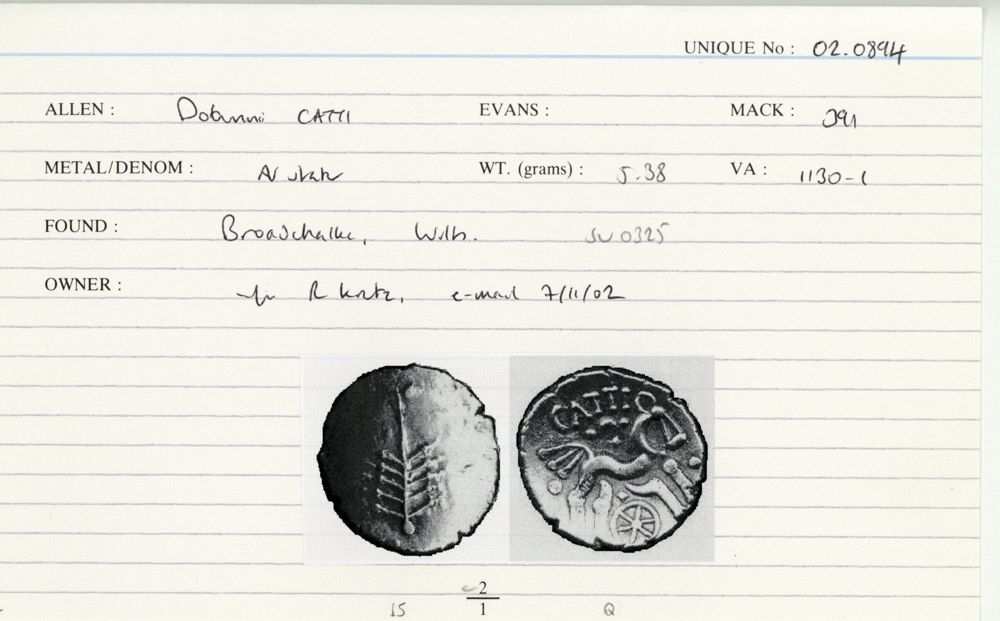 UNIQUE No : 02.0894
ALLEN : Dobunni CATTI EVANS : MACK : 391
METAL/DENOM : AV stater WT. (grams) : 5.38 VA : 1130-1
FOUND : Broadchalke, Wilts. SU 0325
OWNER : R Kretz, e-mail 7/11/02
CATTI
2
1
IS Q